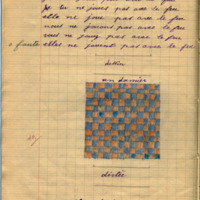 tu ne joues pas avec le feu
elle ne joue pas avec le feu
nous ne jouons pas avec le feu
vous ne jouez pas avec le feu
elles ne jouent pas avec le feu
dessin
un damier
dictée